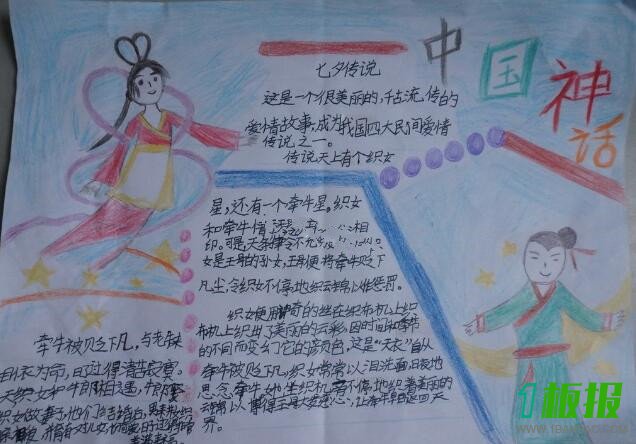 中国神话
七夕传说
这是一个很美丽的,千古流传的
爱情故事,成为我国四大民间爱情
传说之一。
传说天上有个织女
星,还有一个牵牛星。织女
和牵牛情
相
印。可是,天条律令不允
女是王母的孙女,王母便将牵牛贬下
凡尘,令织女不停地织云锦以作惩罚。
织女使用神奇的丝在织布机上织
布机上织出了美丽的云彩,因时间和季节
的不同而变幻它的颜色,这是“天衣”自从
牵牛被贬下凡,织女常常以泪洗面,日夜地
思念牵牛她坐织机不停地织着美丽的
云锦以博得王母大发慈心,让牵牛早日返回天
界。
牵牛被贬下凡,与老牛
相依为命,日过得清苦寂寞。
天织女和牛郎相遇,牛郎娶
1板报